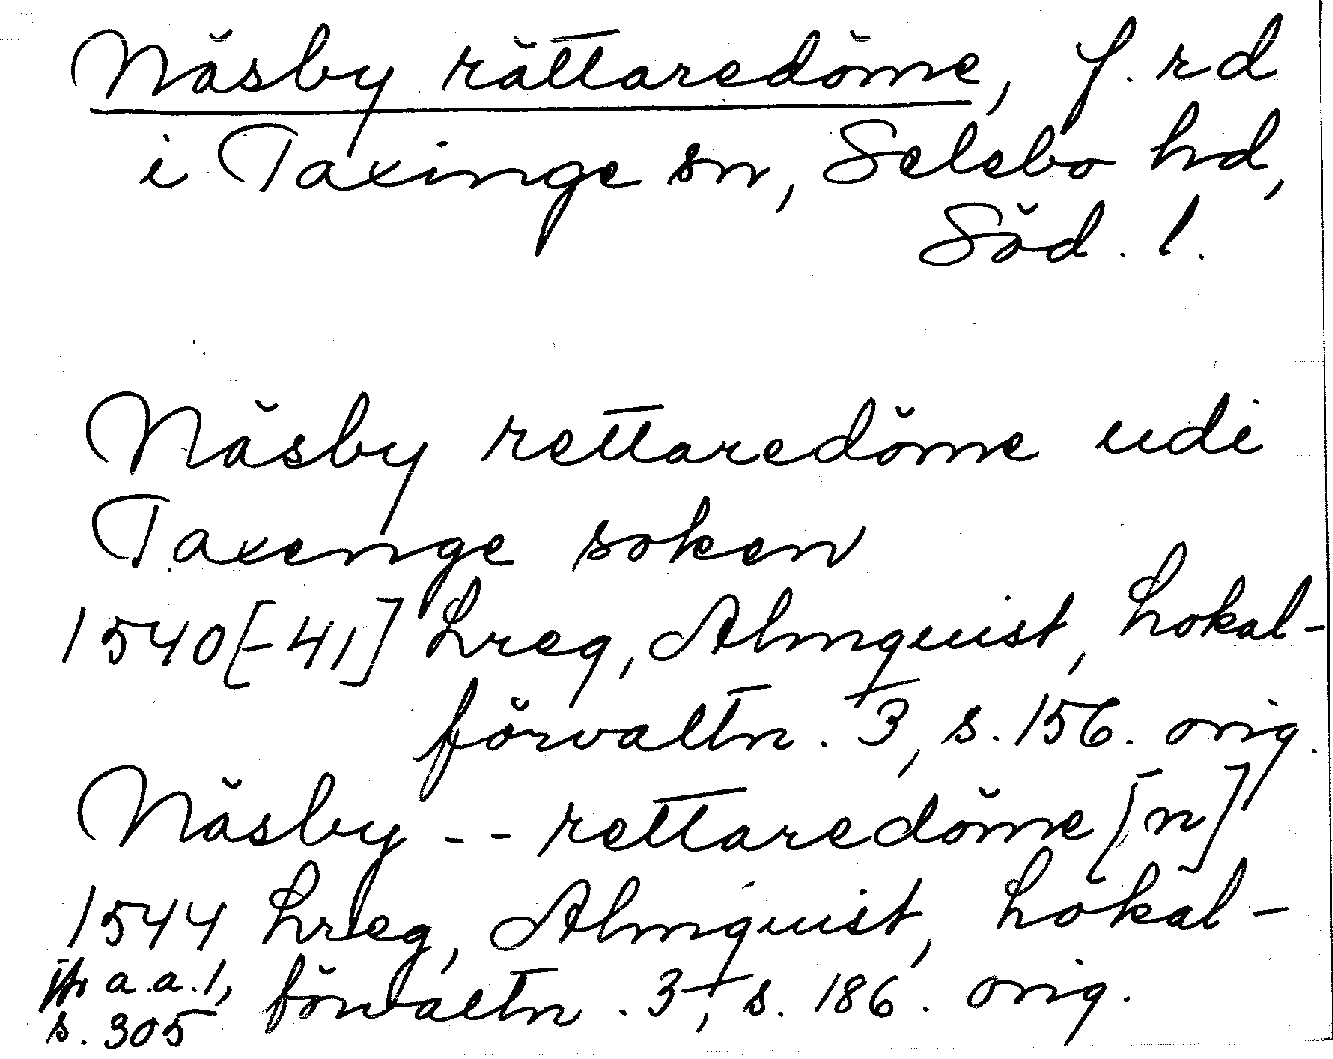 Näsby rättaredöme, f. rd
i Taxinge sn, Selebo hd,
Söd. l.
Näsby rettaredöme udi
Taxenge soken
1540[-41] Lreg, Almquist, Lokal-
förvaltn. 3, s. 156. orig.
Näsby -- rettaredöme[n]
1544 Lreg, Almquist, Lokal-
förvaltn. 3, s. 186. orig.
jfr a.a. 1,
s. 305